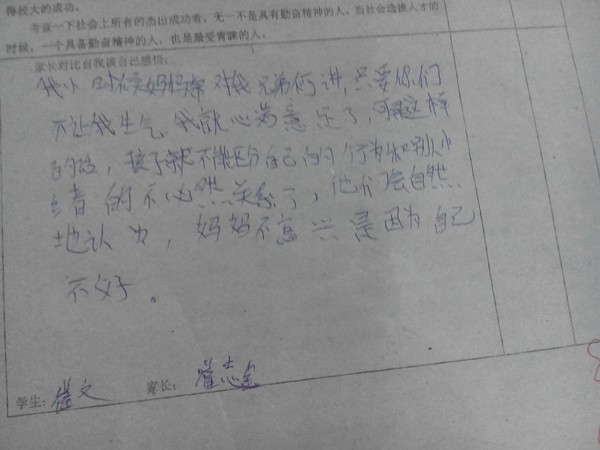 得较大的成功。
考查一下社会上所有的杰出成功者，无一不是具有勤奋精神的人。当社会选拔人才的
时候，一个具备勤奋精神的人，也是最受青睐的人。
家长对比自我谈自己感悟：
我小时候妈妈常对我兄弟们讲，只要你们
不让我生气，我就心满意足了，可是这样
的话，孩子就不能区分自己的行为和别人
情绪的不必然关系了，他们会自然
地认为，妈妈不高兴是因为自己
不好。
学生： 家长：